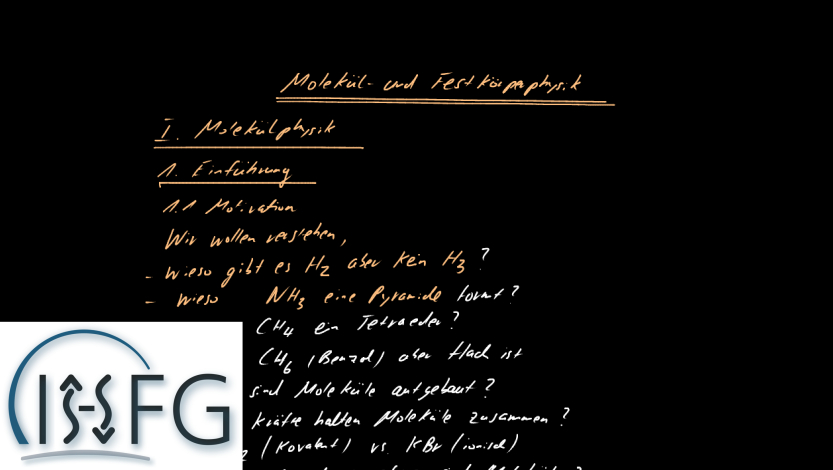 Molekül- und Festkörperphysik
I. Molekülphysik
1. Einführung
1.1 Motivation
Wir wollen verstehen,
- wieso gibt es H2 aber kein H3 ?
- wieso NH3 eine Pyramide formt ?
CH4 ein Tetraeder ?
CH6 (Benzol) aber flach ist
sind Moleküle aufgebaut ?
Kräfte halten Moleküle zusammen ?
2 (kovalent) vs. KBr (ionisch)
FG